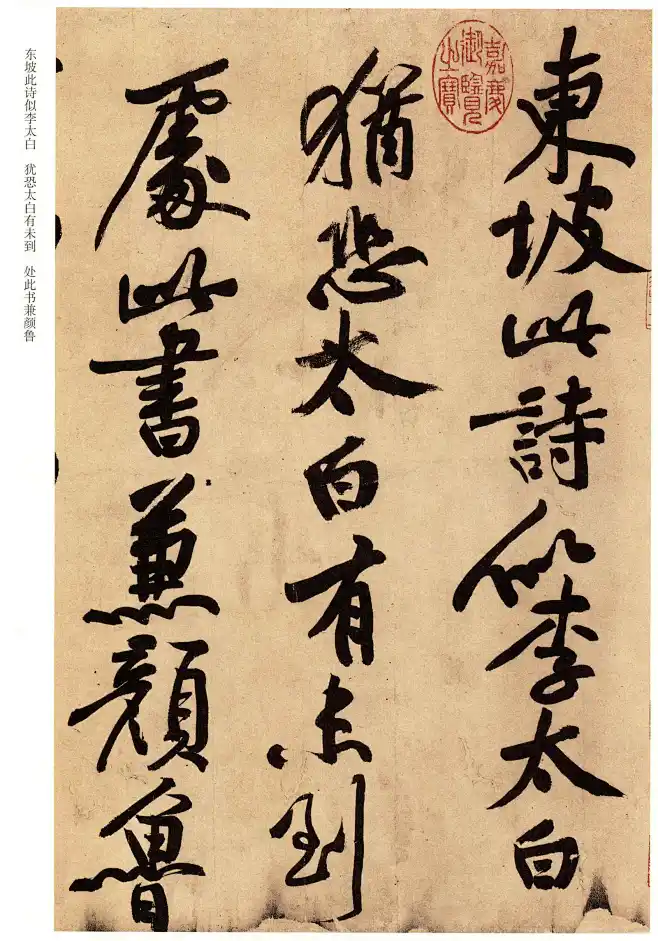 東坡此詩似李太白
猶恐太白有未到
處此書兼顏魯
嘉慶御覽之寶
东坡此诗似李太白　犹恐太白有未到　处此书兼颜鲁